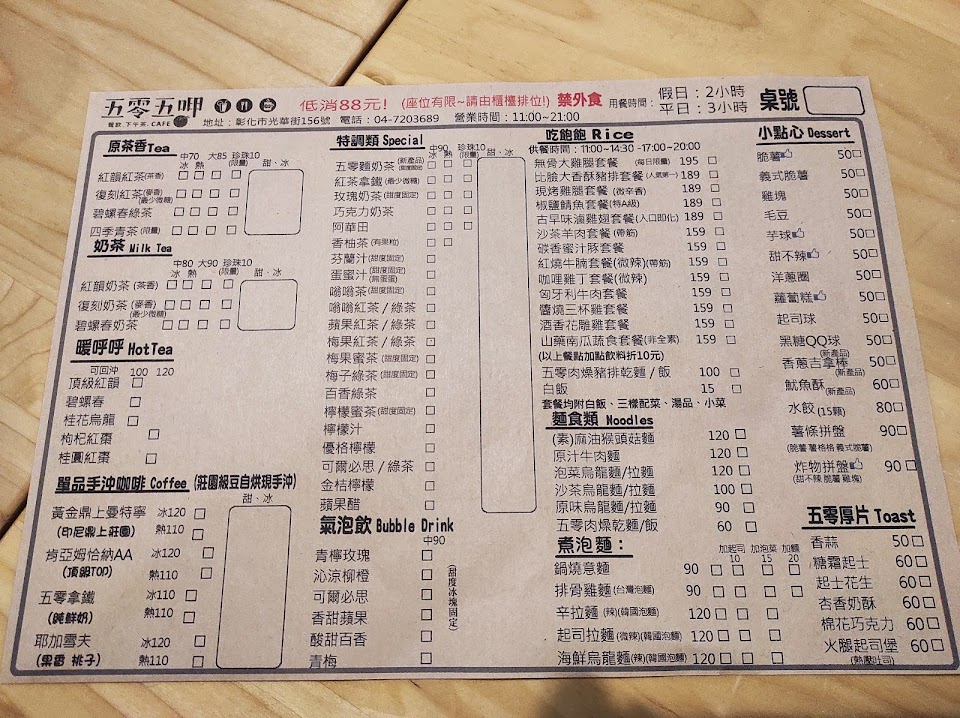 五零五呷
餐飲.下午茶.CAFE
低消88元! (座位有限~請由櫃檯排位!) 禁外食 用餐時間： 假日：2小時
平日：3小時
桌號
地址：彰化市光華街156號 電話：04-7203689 營業時間：11:00~21:00
原茶香Tea
中70 大85 珍珠10
冰 熱 (限量) 甜、冰
紅韻紅茶(茶香)
復刻紅茶(麥香)
(最少微糖)
碧螺春綠茶
四季青茶(限量)
奶茶 Milk Tea
中80 大90 珍珠10
冰 熱 (限量) 甜、冰
紅韻奶茶(茶香)
復刻奶茶(麥香)
(最少微糖)
碧螺春奶茶
暖呼呼 HotTea
可回沖 100 120
頂級紅韻
碧螺春
桂花烏龍
枸杞紅棗
桂圓紅棗
單品手沖咖啡 Coffee (莊園級豆自烘現手沖)
甜、冰
黃金鼎上曼特寧 冰120
(印尼鼎上莊園) 熱110
肯亞姆恰納AA 冰120
(頂級TOP) 熱110
五零拿鐵 冰110
(純鮮奶) 熱110
耶加雪夫 冰120
(果香 桃子) 熱110
特調類 Special
中90 珍珠10
冰 熱 (限量) 甜、冰
五零麵奶茶(新產品)
(甜度固定)
紅茶拿鐵(最少微糖)
玫瑰奶茶(甜度固定)
巧克力奶茶
阿華田
香柚茶(有果粒)
芬蘭汁(甜度固定)
蛋蜜汁(甜度固定)
(無蛋蛋)
嗡嗡茶(甜度固定)
嗡嗡紅茶/綠茶
蘋果紅茶/綠茶
梅果紅茶/綠茶
梅果蜜茶(甜度固定)
梅子綠茶(甜度固定)
百香綠茶
檸檬蜜茶(甜度固定)
檸檬汁
優格檸檬
可爾必思/綠茶
金桔檸檬
蘋果醋
氣泡飲 Bubble Drink
中90
青檸玫瑰
沁涼柳橙
可爾必思
香甜蘋果
酸甜百香
青梅
(甜度冰塊固定)
吃飽飽 Rice
供餐時間：11:00~14:30 -17:00~20:00
無骨大雞腿套餐 (每日限量) 195
比臉大香酥豬排套餐(人氣第一) 189
現烤雞腿套餐 (微辛香) 189
椒鹽鯖魚套餐(特A級) 189
古早味滷雞翅套餐(入口即化) 189
沙茶羊肉套餐(帶筋) 159
碳香蜜汁豚套餐 159
紅燒牛腩套餐(微辣)(帶筋) 159
咖哩雞丁套餐(微辣) 159
匈牙利牛肉套餐 159
醬燒三杯雞套餐 159
酒香花雕雞套餐 159
山藥南瓜蔬食套餐(非全素) 159
(以上餐點加點飲料折10元)
五零肉燥豬排乾麵/飯 100
白飯 15
套餐均附白飯、三樣配菜、湯品、小菜
麵食類 Noodles
(素)麻油猴頭菇麵 120
原汁牛肉麵 120
泡菜烏龍麵/拉麵 120
沙茶烏龍麵/拉麵 100
原味烏龍麵/拉麵 90
五零肉燥乾麵/飯 60
煮泡麵：
加起司 加泡菜 加麵
10 15 20
鍋燒意麵 90
排骨雞麵(台灣泡麵) 90
辛拉麵 (辣)(韓國泡麵) 120
起司拉麵(微辣)(韓國泡麵) 120
海鮮烏龍麵(辣)(韓國泡麵) 120
小點心 Dessert
脆薯 50
義式脆薯 50
雞塊 50
毛豆 50
芋球 50
甜不辣 50
洋蔥圈 50
蘿蔔糕 50
起司球 50
黑糖QQ球 50
(新產品)
香蔥吉拿棒 50
(新產品)
魷魚酥 60
(新產品)
水餃 (15顆) 80
薯條拼盤 90
(脆薯 薯格格 義式脆薯)
炸物拼盤 90
(甜不辣 脆薯 雞塊)
五零厚片 Toast
香蒜 50
糖霜起士 60
起士花生 60
杏香奶酥 60
棉花巧克力 60
火腿起司堡 60
(熱壓吐司)